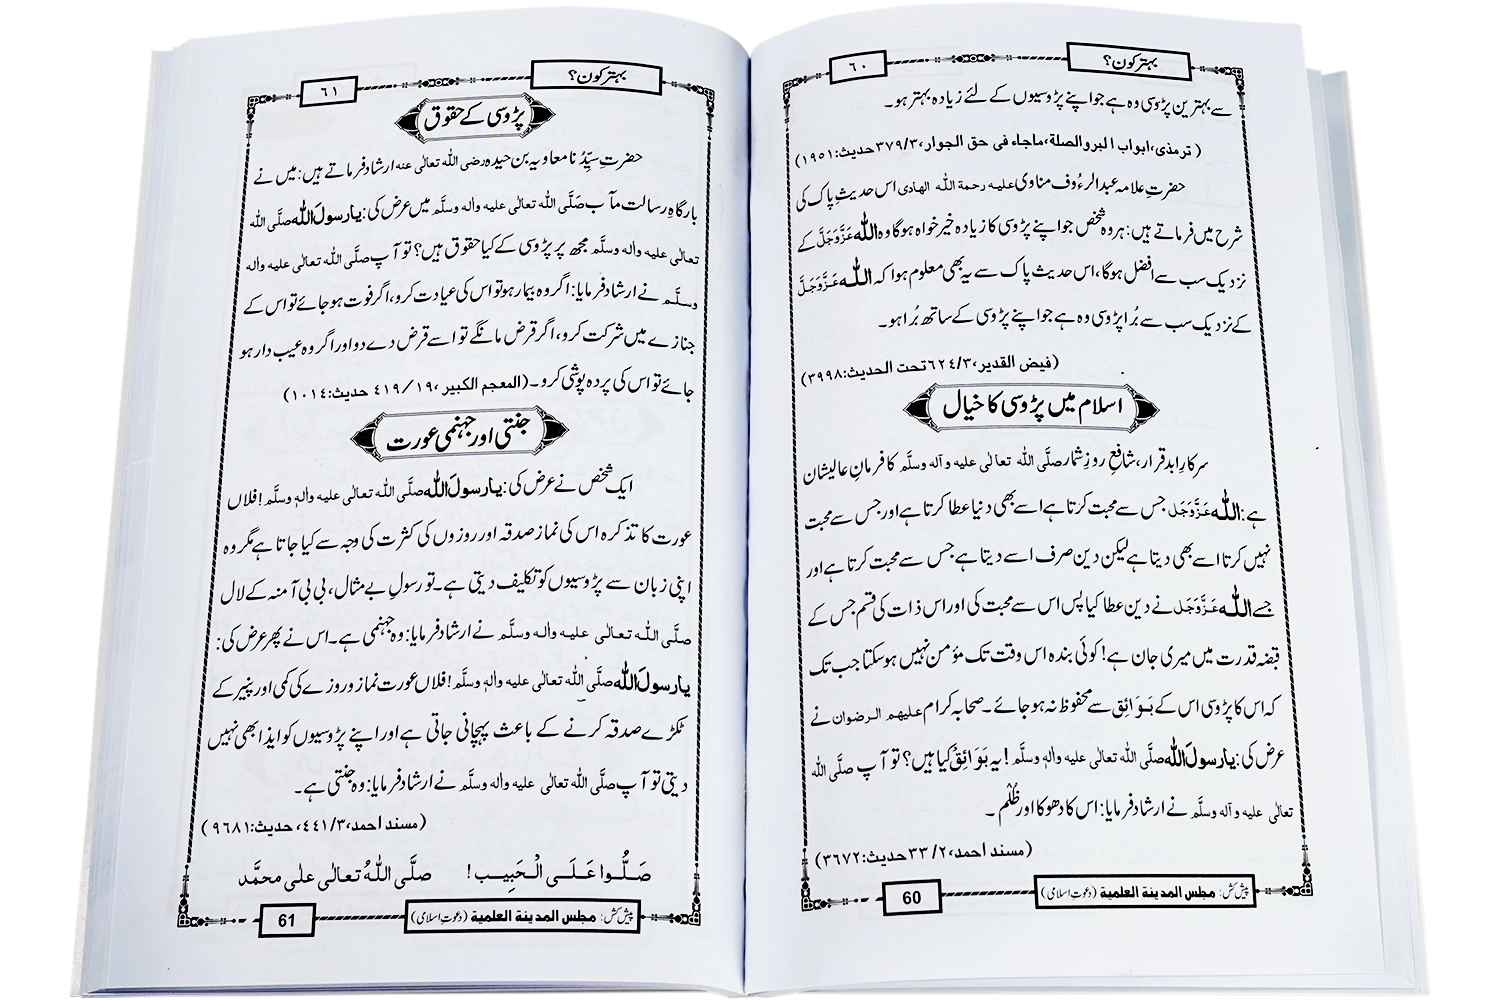 ٦٠
بہتر کون؟
سے بہترین پڑوسی وہ ہے جو اپنے پڑوسیوں کے لئے زیادہ بہتر ہو۔
(ترمذی، ابواب البر والصلۃ، ماجاء فی حق الجوار، ٣/٣٧٩ حدیث: ١٩٥١)
حضرتِ علامہ عبدالرءُوف مناوی علیہ رحمۃ اللہ الھادی اس حدیثِ پاک کی
شرح میں فرماتے ہیں: ہر وہ شخص جو اپنے پڑوسی کا زیادہ خیر خواہ ہوگا وہ اللّٰہ عَزَّوَجَلَّ کے
نزدیک سب سے افضل ہوگا، اس حدیث پاک سے یہ بھی معلوم ہوا کہ اللّٰہ عَزَّوَجَلَّ
کے نزدیک سب سے بُرا پڑوسی وہ ہے جو اپنے پڑوسی کے ساتھ بُرا ہو۔
(فیض القدیر، ٣/٦٢٤ تحت الحدیث: ٣٩٩٨)
اسلام میں پڑوسی کا خیال
سرکارِ ابد قرار، شافعِ روزِ شمار صلَّی اللہ تعالٰی علیہ و آلہ وسلَّم کا فرمانِ عالیشان
ہے: اللّٰہ عَزَّوَجَل جس سے محبت کرتا ہے اسے بھی دنیا عطا کرتا ہے اور جس سے محبت
نہیں کرتا اسے بھی دیتا ہے لیکن دین صرف اسے دیتا ہے جس سے محبت کرتا ہے اور
جسے اللّٰہ عَزَّوَجَل نے دین عطا کیا پس اس سے محبت کی اور اس ذات کی قسم جس کے
قبضہ قدرت میں میری جان ہے! کوئی بندہ اس وقت تک مؤمن نہیں ہوسکتا جب تک
کہ اس کا پڑوسی اس کے بَوَائِق سے محفوظ نہ ہو جائے۔ صحابہ کرام علیھم الرضوان نے
عرض کی: یارسولَ اللّٰہ صلَّی اللہ تعالٰی علیہ والہٖ وسلَّم! یہ بَوَائِقُ کیا ہیں؟ تو آپ صلَّی اللہ
تعالٰی علیہ و آلہ وسلَّم نے ارشاد فرمایا: اس کا دھوکا اور ظُلْم۔
(مسند احمد، ٢/٣٣ حدیث: ٣٦٧٢)
60
پیش کش: مجلس المدینۃ العلمیۃ (دعوتِ اسلامی)
٦١
بہتر کون؟
پڑوسی کے حقوق
حضرتِ سیِّدُنا معاویہ بن حیدہ رضی اللہ تعالٰی عنہ ارشاد فرماتے ہیں: میں نے
بارگاہِ رسالت مآب صَلَّی اللہ تعالٰی علیہ والہ وسلَّم میں عرض کی: یارسولَ اللّٰہ صلَّی اللہ
تعالٰی علیہ والہ وسلَّم مجھ پر پڑوسی کے کیا حقوق ہیں؟ تو آپ صلَّی اللہ تعالٰی علیہ والہ
وسلَّم نے ارشاد فرمایا: اگر وہ بیمار ہو تو اس کی عیادت کرو، اگر فوت ہو جائے تو اس کے
جنازے میں شرکت کرو، اگر قرض مانگے تو اسے قرض دے دو اور اگر وہ عیب دار ہو
جائے تو اس کی پردہ پوشی کرو۔ (المعجم الکبیر، ١٩/٤١٩ حدیث: ١٠١٤)
جنتی اور جہنمی عورت
ایک شخص نے عرض کی: یارسولَ اللّٰہ صلَّی اللہ تعالٰی علیہ والہٖ وسلَّم! فلاں
عورت کا تذکرہ اس کی نماز صدقہ اور روزوں کی کثرت کی وجہ سے کیا جاتا ہے مگر وہ
اپنی زبان سے پڑوسیوں کو تکلیف دیتی ہے۔ تو رسولِ بے مثال، بی بی آمنہ کے لال
صلَّی اللہ تعالٰی علیہ والہ وسلَّم نے ارشاد فرمایا: وہ جہنمی ہے۔ اس نے پھر عرض کی:
یارسولَ اللّٰہ صلَّی اللہ تعالٰی علیہ والہٖ وسلَّم! فلاں عورت نماز و روزے کی کمی اور پنیر کے
ٹکڑے صدقہ کرنے کے باعث پہچانی جاتی ہے اور اپنے پڑوسیوں کو ایذا بھی نہیں
دیتی تو آپ صلَّی اللہ تعالٰی علیہ والہ وسلَّم نے ارشاد فرمایا: وہ جنتی ہے۔
(مسند احمد، ٣/٤٤١، حدیث: ٩٦٨١)
صَلُّوا عَلَی الْحَبِیب! صلَّی اللّٰہُ تعالٰی علٰی محمَّد
61
پیش کش: مجلس المدینۃ العلمیۃ (دعوتِ اسلامی)